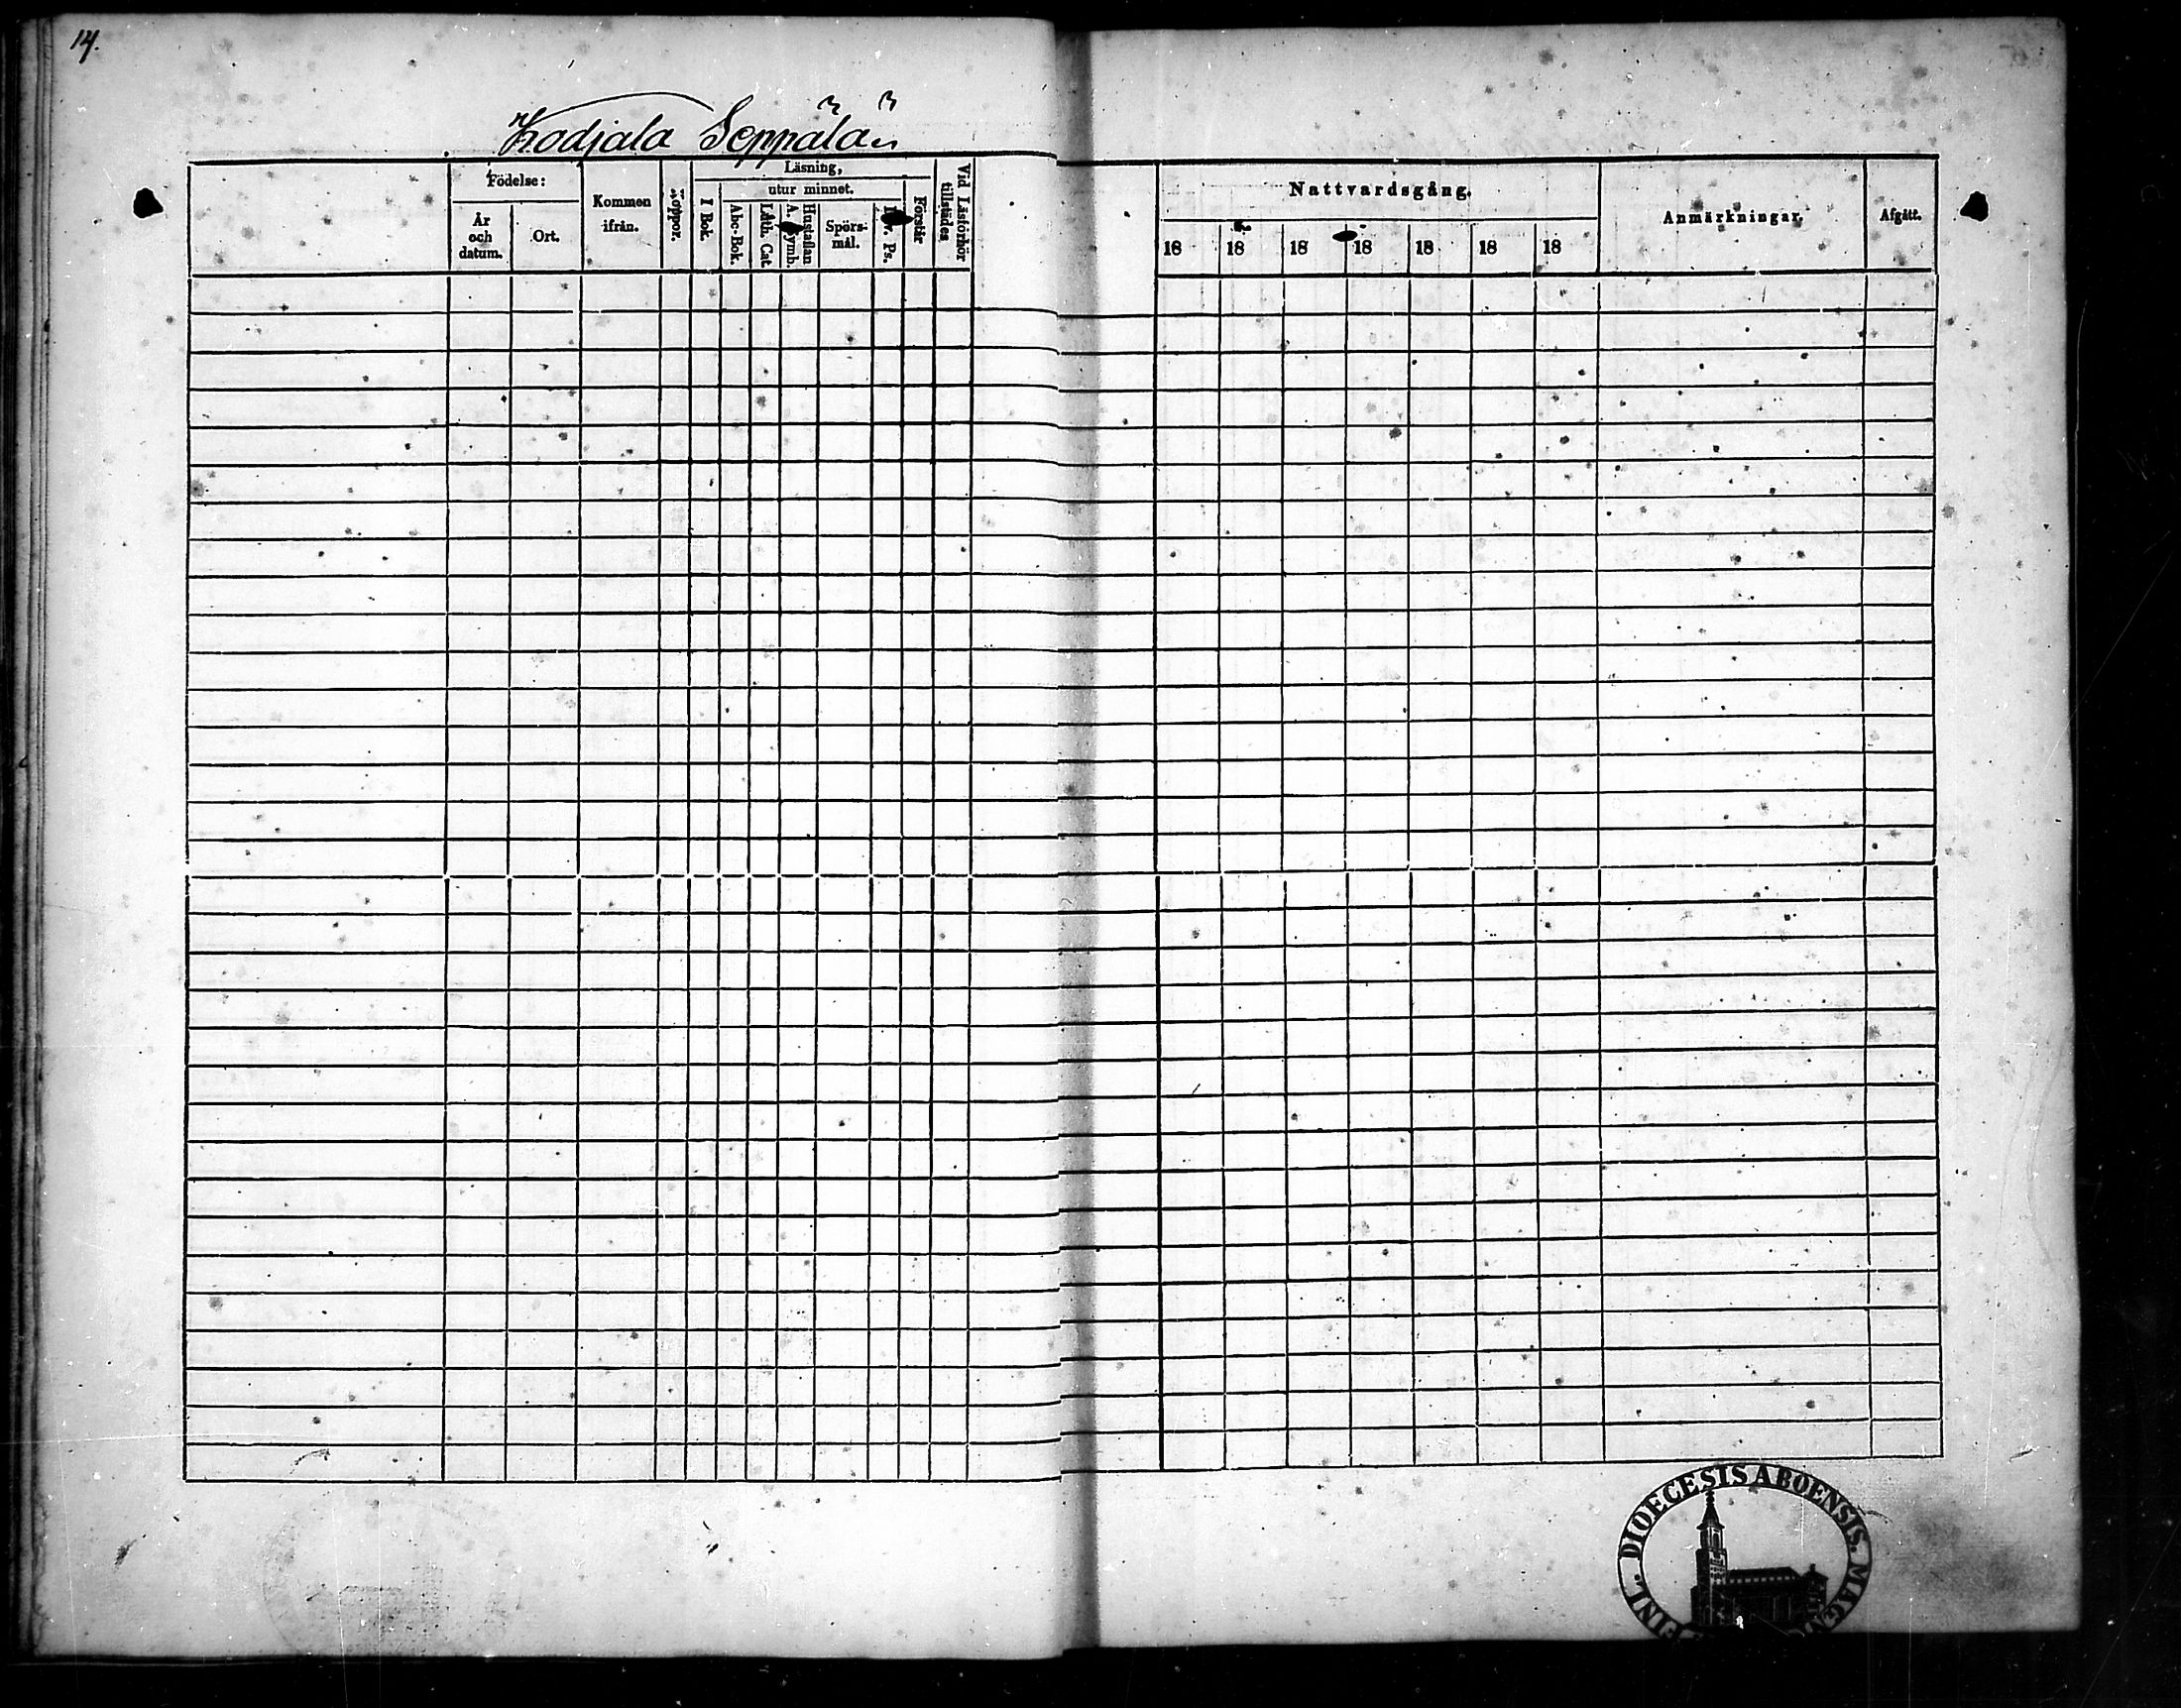 14.
Kodjala Seppälä
Födelse:
År och datum.
Ort.
Kommen ifrån.
Koppor.
Läsning,
I Bok.
utur minnet.
Abc-Bok.
Luth. Cat.
Hustaflan
Spörs-
mål.
Ps.
Förstår
Vid Läsförhör tillstädes
Nattvardsgång.
18 18 18 18 18 18 18
Anmärkningar.
Afgått.
DIOECESIS ABOENSIS. MAG.